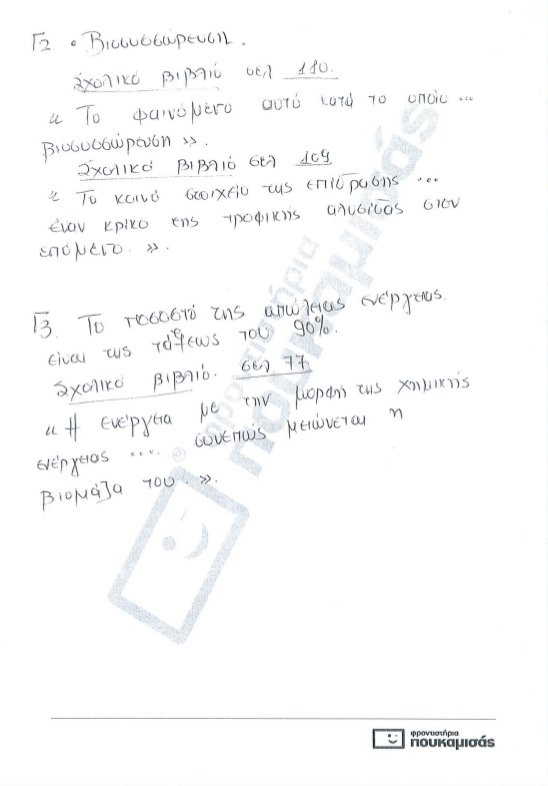 Γ2 • Βιοσυσσώρευση.
Σχολικό βιβλίο σελ 110.
« Το φαινόμενο αυτό κατά το οποίο ...
βιοσυσσώρευση ».
Σχολικό βιβλίο σελ 109
« Το κοινό στοιχείο της επίδρασης ...
έναν κρίκο της τροφικής αλυσίδας στον
επόμενο. ».
Γ3. Το ποσοστό της απώλειας ενέργειας
είναι της τάξεως του 90%.
Σχολικό βιβλίο. σελ 77
« Η ενέργεια με την μορφή της χημικής
ενέργειας .... συνεπώς μειώνεται η
βιομάζα του. ».
φροντιστήρια
πουκαμισάς
φροντιστήρια
πουκαμισάς